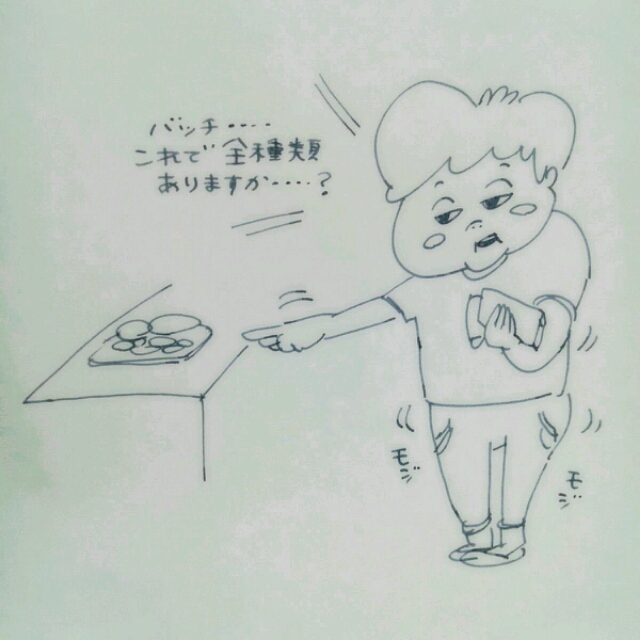 バッチ‥‥
これで全種類
ありますか‥‥?
モジ
モジ